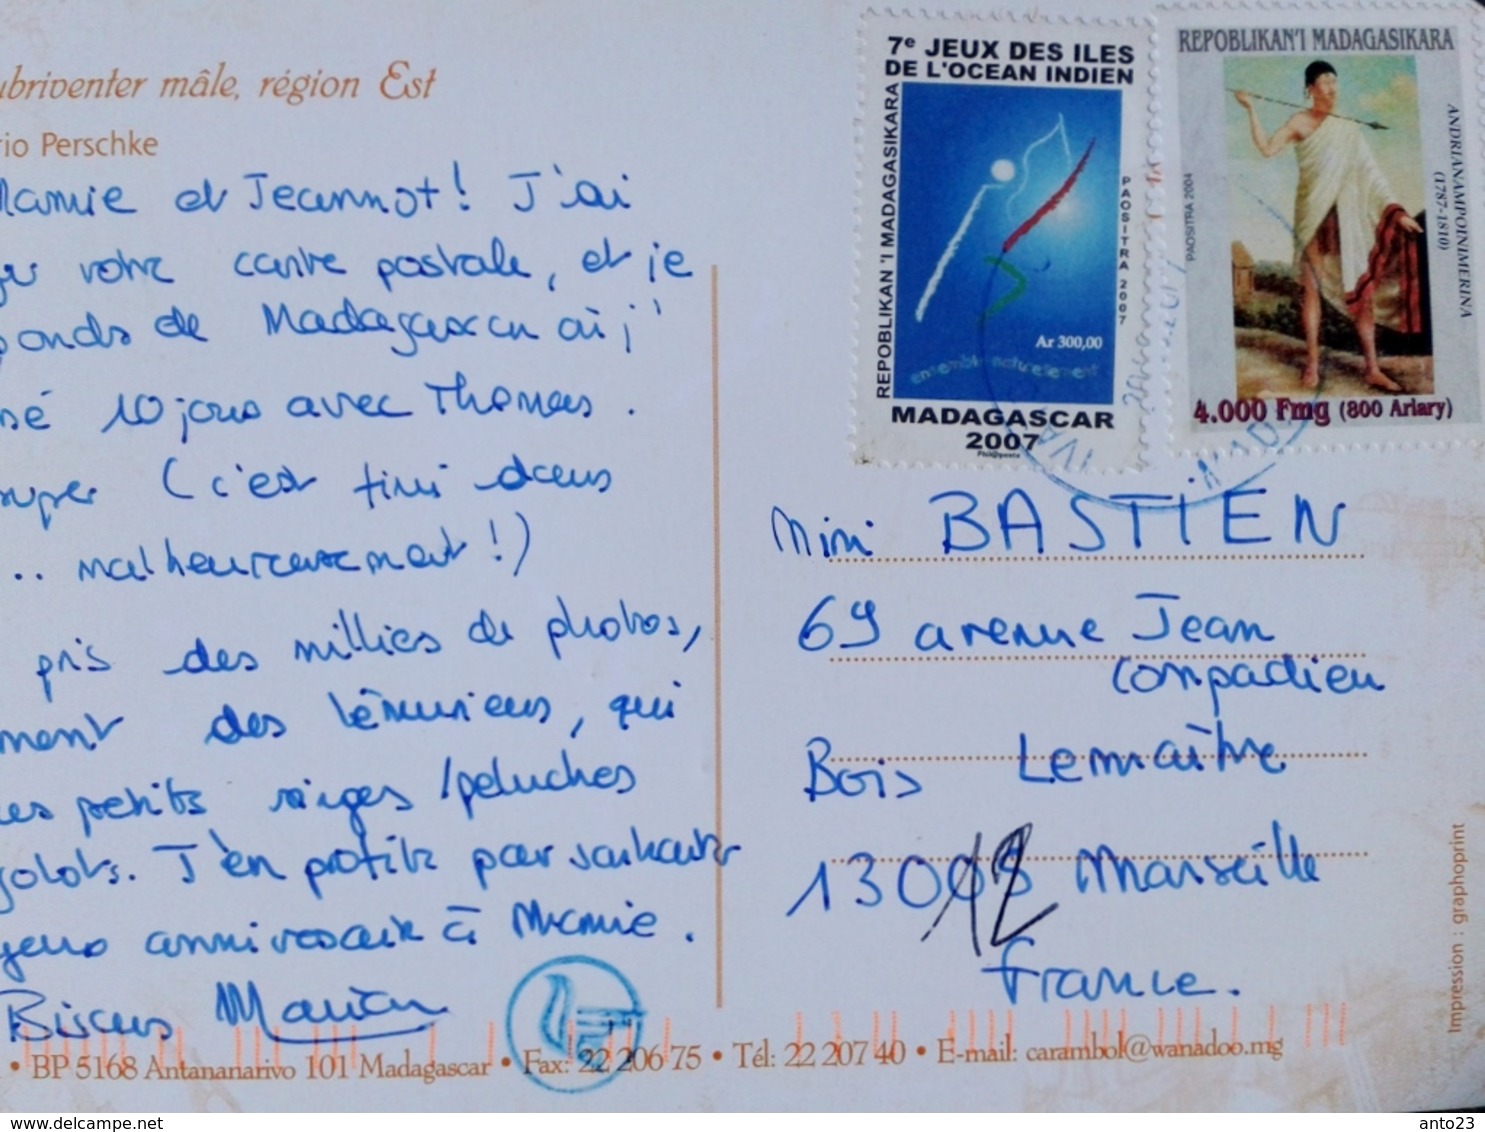 ubriventer mâle, région Est
rio Perschke
Mamie et Jeannot! J'ai
votre carte postale, et je
ponds de Madagascar où j'
sé 10 jours avec Thomas.
super (c'est fini dans
.. malheureusement!)
pris des milliers de photos,
ment des lémuriens, qui
des petits singes/peluches
golots. J'en profite pour souhaiter
yeux anniversaire à Mamie.
Bisous Marion
7e JEUX DES ILES
DE L'OCEAN INDIEN
REPOBLIKAN'I MADAGASIKARA
PAOSITRA 2007
Ar 300,00
ensemble naturellement
MADAGASCAR
2007
REPOBLIKAN'I MADAGASIKARA
ANDRIANAMPOINIMERINA
(1787-1810)
PAOSITRA 2004
4.000 Fmg (800 Ariary)
Mimi BASTIEN
69 avenue Jean
Compadieu
Bois Lemaître
13012 Marseille
France.
Impression : graphoprint
• BP 5168 Antananarivo 101 Madagascar • Fax: 22 206 75 • Tél: 22 207 40 • E-mail: carambol@wanadoo.mg
www.delcampe.net
anto23